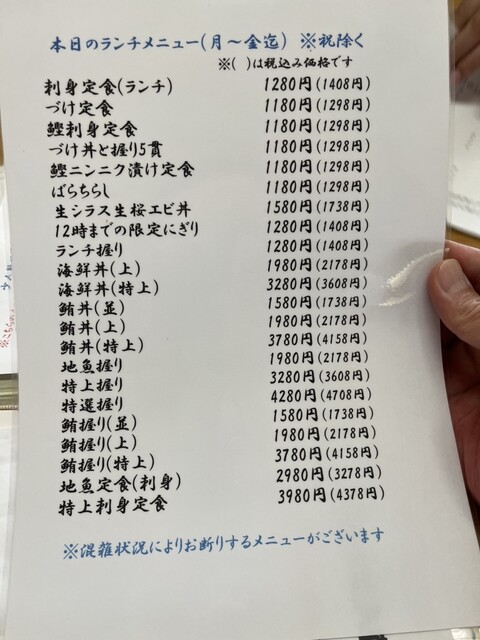 本日のランチメニュー(月～金迄) ※祝除く
※( )は税込み価格です
刺身定食(ランチ) 1280円(1408円)
づけ定食 1180円(1298円)
鰹刺身定食 1180円(1298円)
づけ丼と握り5貫 1180円(1298円)
鰹ニンニク漬け定食 1180円(1298円)
ばらちらし 1180円(1298円)
生シラス生桜エビ丼 1580円(1738円)
12時までの限定にぎり 1280円(1408円)
ランチ握り 1280円(1408円)
海鮮丼(上) 1980円(2178円)
海鮮丼(特上) 3280円(3608円)
鮪丼(並) 1580円(1738円)
鮪丼(上) 1980円(2178円)
鮪丼(特上) 3780円(4158円)
地魚握り 1980円(2178円)
特上握り 3280円(3608円)
特選握り 4280円(4708円)
鮪握り(並) 1580円(1738円)
鮪握り(上) 1980円(2178円)
鮪握り(特上) 3780円(4158円)
地魚定食(刺身) 2980円(3278円)
特上刺身定食 3980円(4378円)
※混雑状況によりお断りするメニューがございます